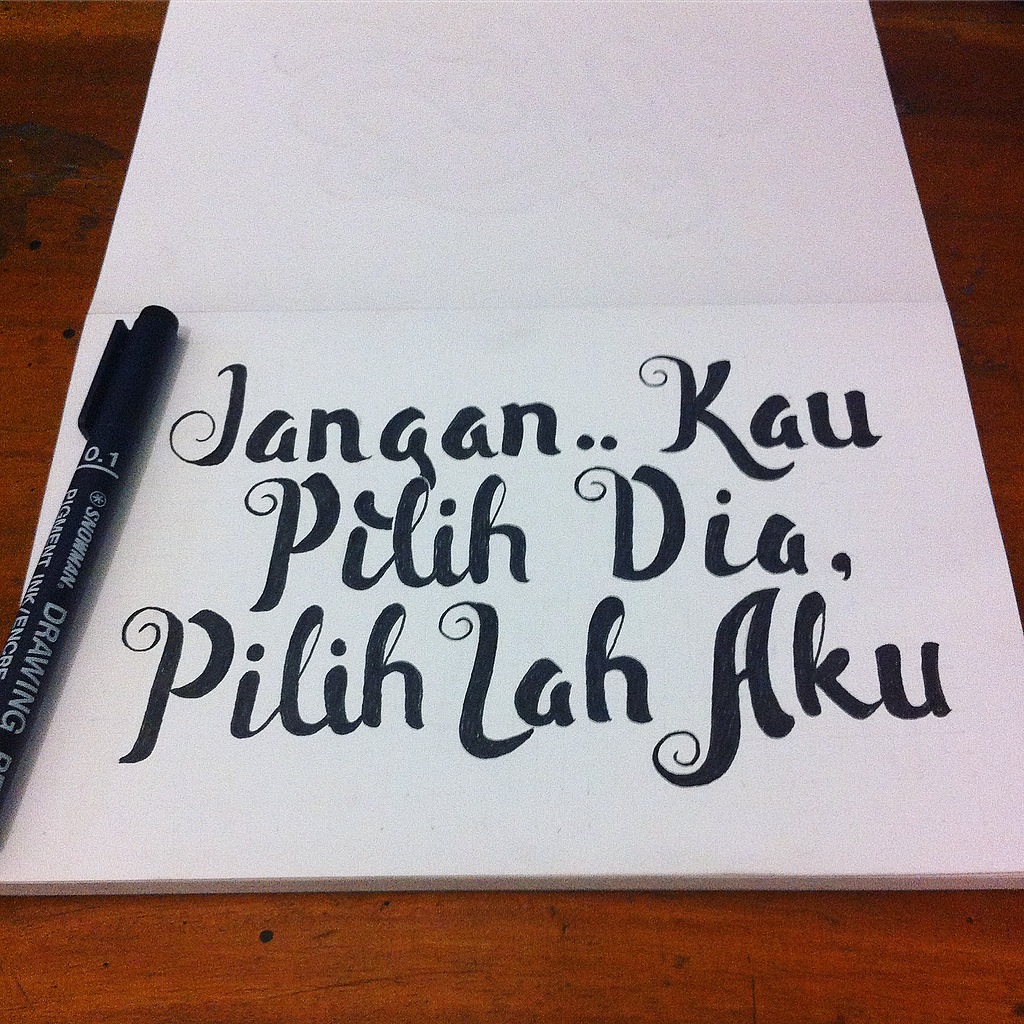 Jangan.. Kau
Pilih Dia,
Pilih Lah Aku
0.1
SNOWMAN. DRAWING
PIGMENT INK/ENCRE